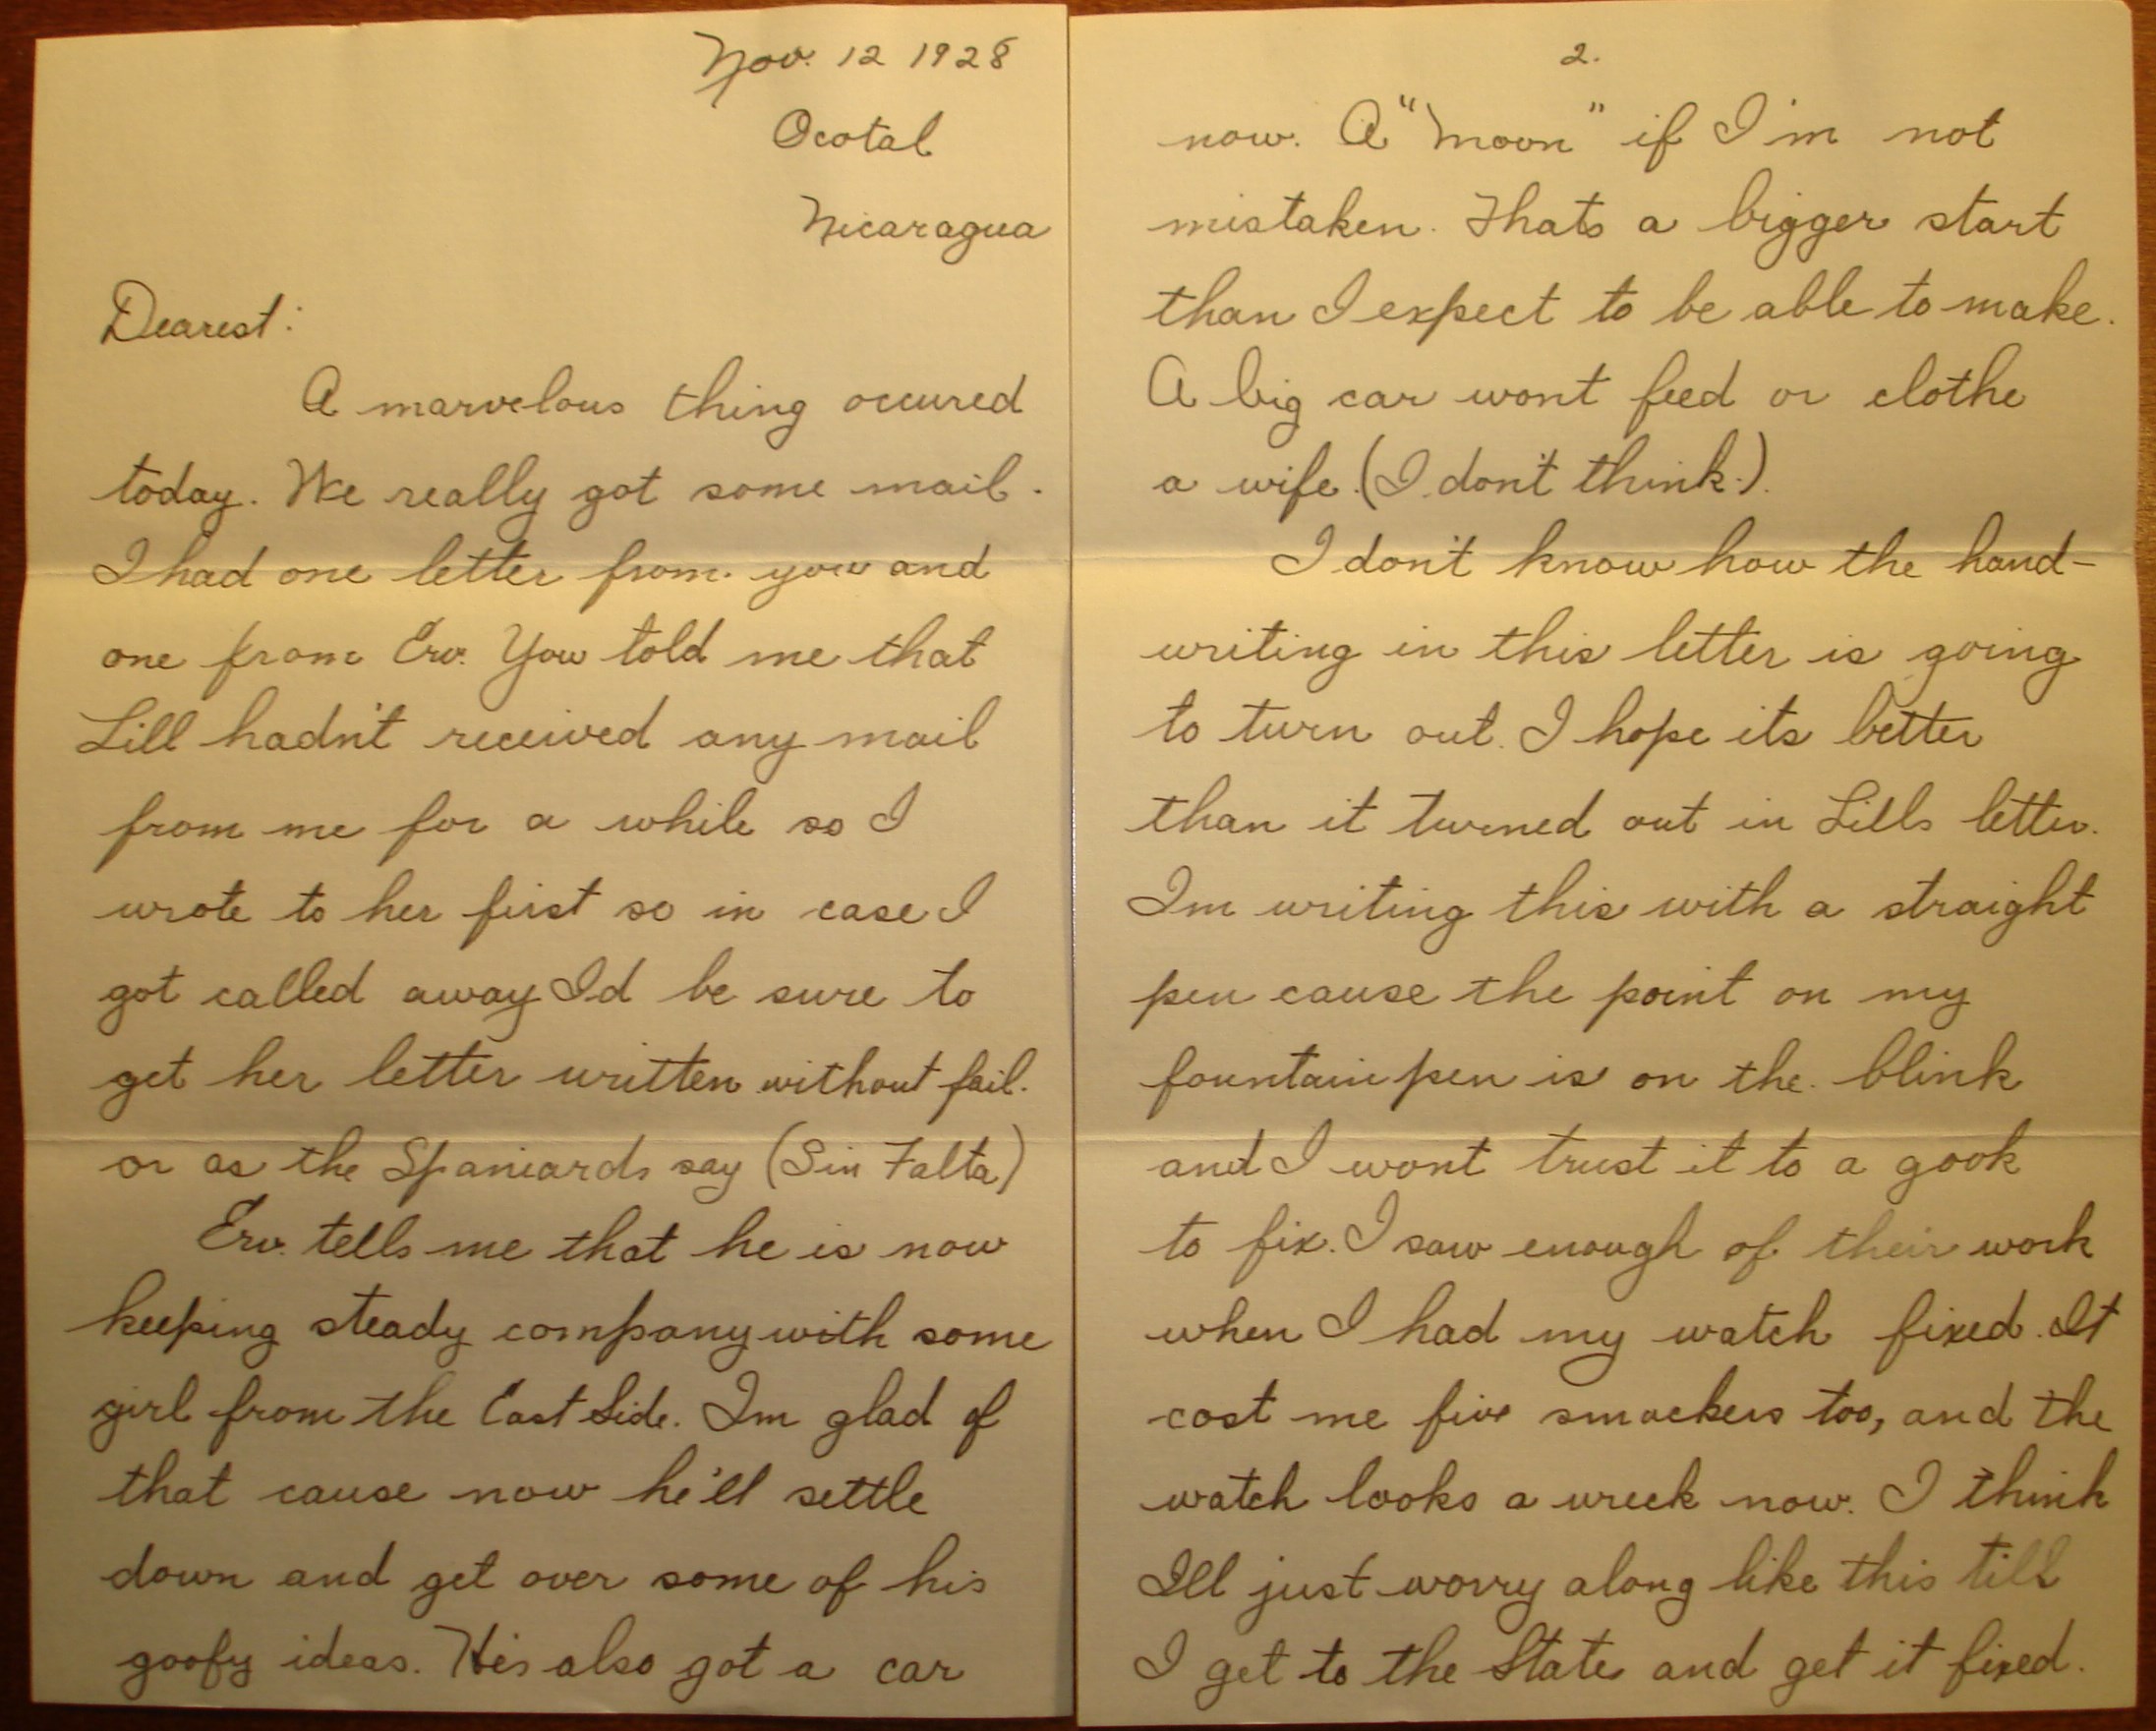 Nov. 12 1928
Ocotal
Nicaragua
Dearest:
A marvelous thing occured
today. We really got some mail.
I had one letter from you and
one from Erv. You told me that
Lill hadn't received any mail
from me for a while so I
wrote to her first so in case I
got called away Id be sure to
get her letter written without fail.
or as the Spaniards say (Sin Falta)
Erv. tells me that he is now
keeping steady company with some
girl from the East Side. Im glad of
that cause now he'll settle
down and get over some of his
goofy ideas. He's also got a car
2.
now. A "Moon" if I'm not
mistaken. Thats a bigger start
than I expect to be able to make.
A big car wont feed or clothe
a wife. (I don't think.).
I don't know how the hand-
writing in this letter is going
to turn out. I hope its better
than it turned out in Lills letter.
Im writing this with a straight
pen cause the point on my
fountain pen is on the blink
and I wont trust it to a gook
to fix. I saw enough of their work
when I had my watch fixed. It
cost me five smackers too, and the
watch looks a wreck now. I think
Ill just worry along like this till
I get to the States and get it fixed.